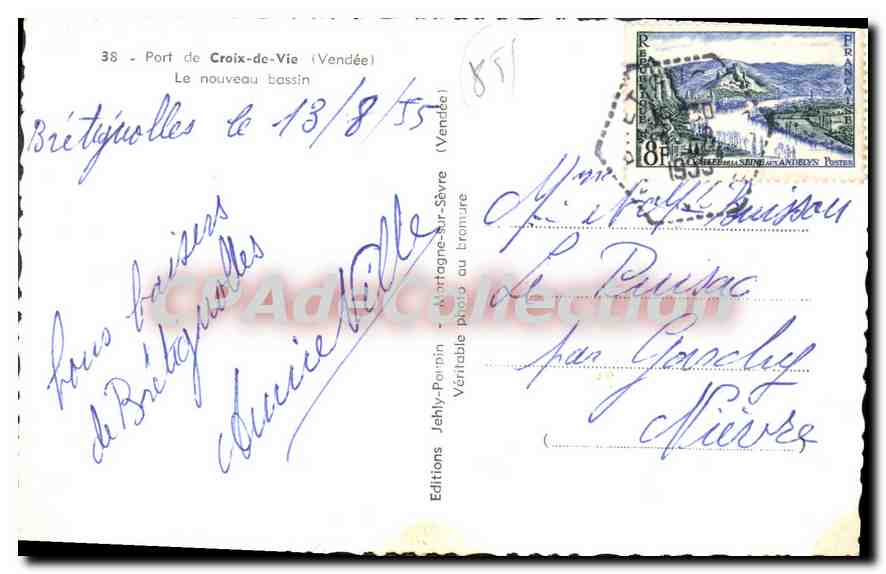 38 - Port de Croix-de-Vie (Vendée)
Le nouveau bassin
Brétignolles le 13/8/55
bons baisers
de Brétignolles
Editions Jehly-Poupin - Mortagne-sur-Sèvre (Vendée)
Véritable photo au bromure
851
REPUBLIQUE FRANÇAISE
8F VALLEE DE LA SEINE AUX ANDELYS POSTES
1955
Mme et Melle Buisson
Le Puisac
par Gouchy
Nièvre
CPAdeCollection